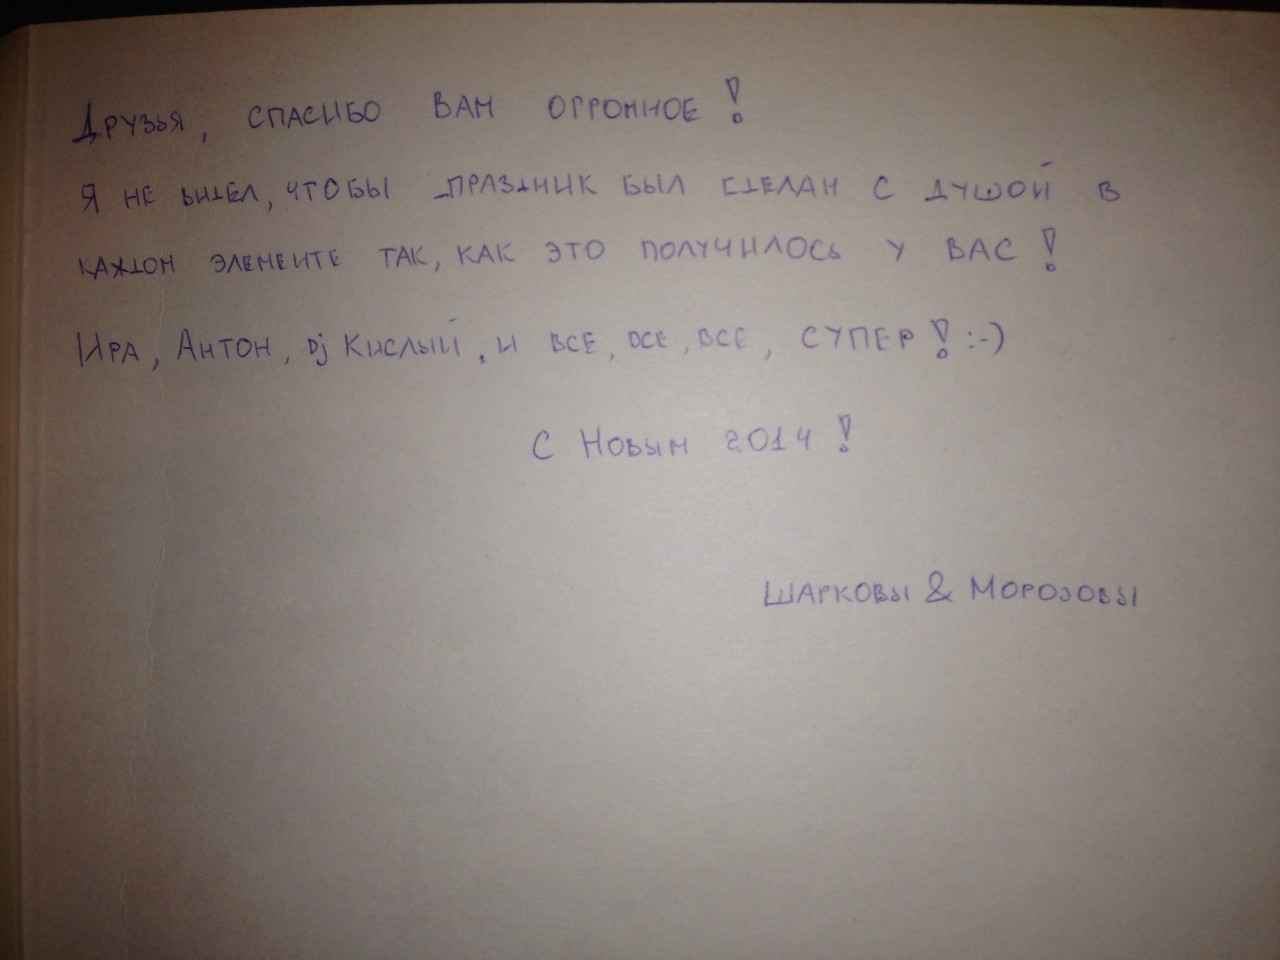 Друзья, спасибо вам огромное!
Я не видел, чтобы праздник был сделан с душой в
каждом элементе так, как это получилось у вас!
Ира, Антон, Dj Кислый, и все, все, все, супер! :-)
С Новым 2014!
Шарковы & Морозовы